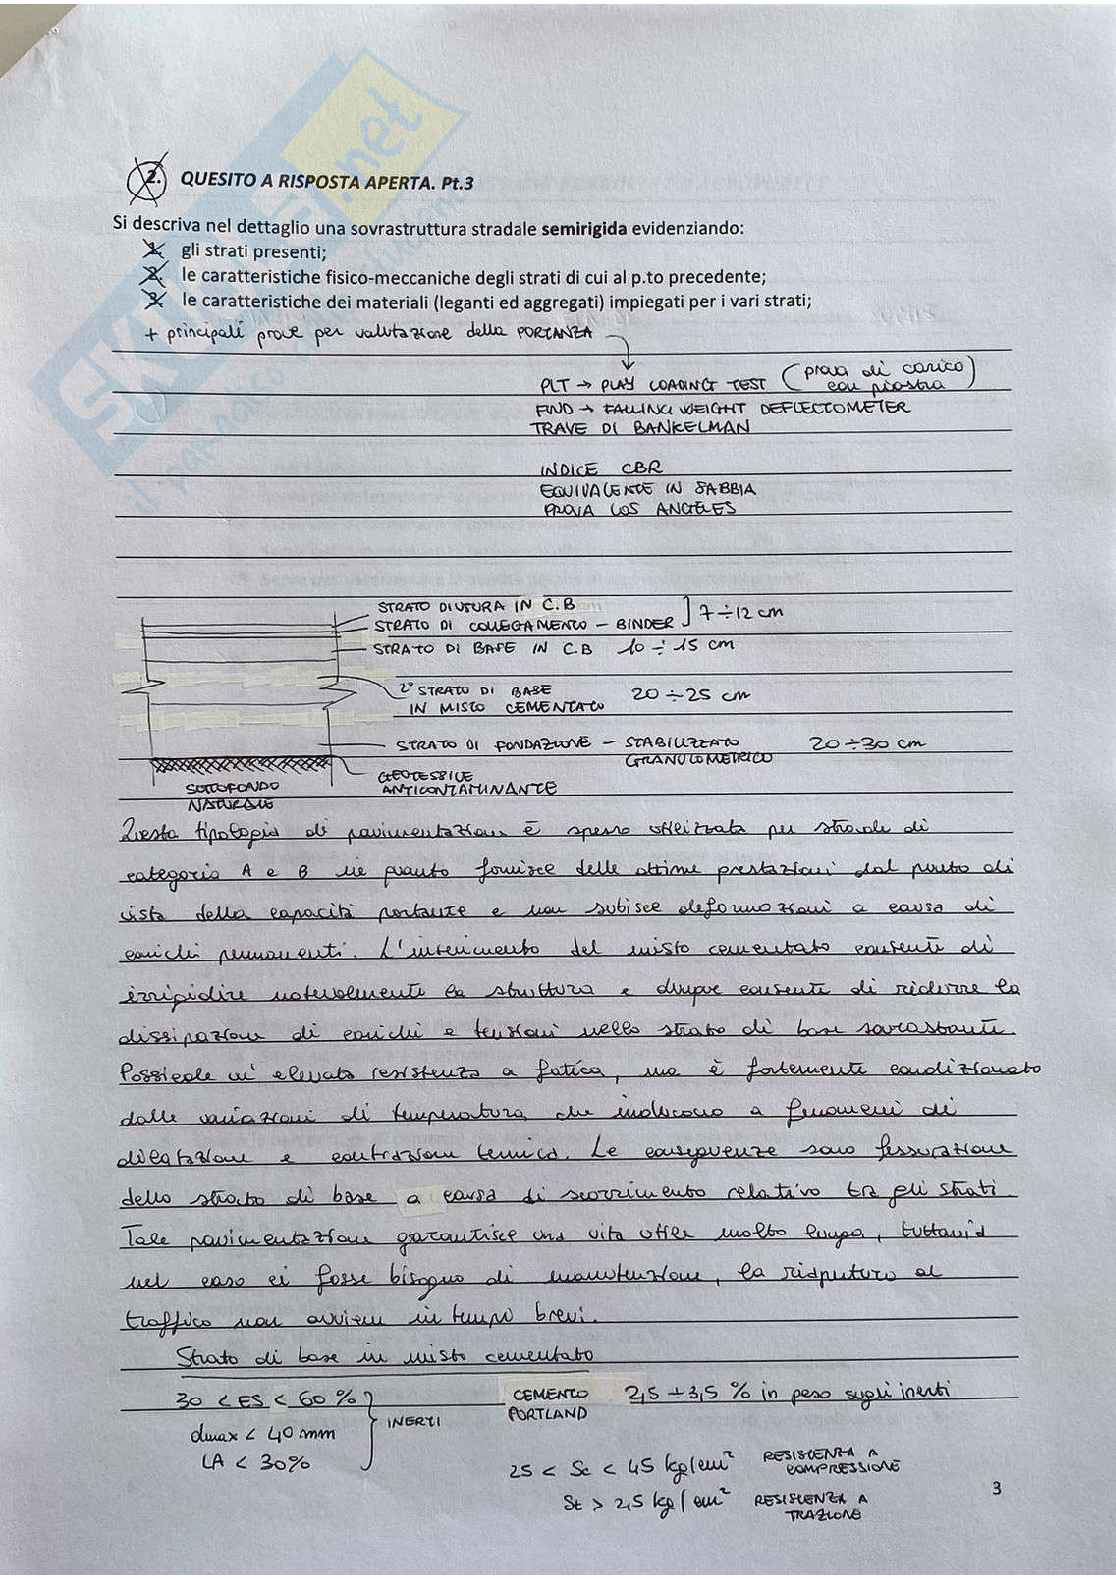 2. QUESITO A RISPOSTA APERTA. Pt.3
Si descriva nel dettaglio una sovrastruttura stradale semirigida evidenziando:
1. gli strati presenti;
2. le caratteristiche fisico-meccaniche degli strati di cui al p.to precedente;
3. le caratteristiche dei materiali (leganti ed aggregati) impiegati per i vari strati;
+ principali prove per valutazione della PORTANZA
PLT → PLAY LOADING TEST (prova di carico con piastra)
FWD → FALLING WEIGHT DEFLECTOMETER
TRAVE DI BANKELMAN
INDICE CBR
EQUIVALENTE IN SABBIA
PROVA LOS ANGELES
STRATO DI USURA IN C.B
STRATO DI COLLEGAMENTO - BINDER ] 7 ÷ 12 cm
STRATO DI BASE IN C.B 10 ÷ 15 cm
2° STRATO DI BASE
IN MISTO CEMENTATO 20 ÷ 25 cm
STRATO DI FONDAZIONE - STABILIZZATO 20 ÷ 30 cm
GRANULOMETRICO
GEOTESSILE
ANTICONTAMINANTE
SOTTOFONDO
NATURALE
Questa tipologia di pavimentazione è spesso utilizzata per strade di
categoria A e B in quanto fornisce delle ottime prestazioni dal punto di
vista della capacità portante e non subisce deformazioni a causa di
carichi permanenti. L'inserimento del misto cementato consente di
irrigidire notevolmente la struttura e dunque consente di ridurre la
dissipazione di carichi e tensioni nello strato di base sovrastante.
Possiede un' elevata resistenza a fatica, ma è fortemente condizionato
dalle variazioni di temperatura che inducono a fenomeni di
dilatazione e contrazione termica. Le conseguenze sono fessurazione
dello strato di base a causa di scorrimento relativo tra gli strati.
Tale pavimentazione garantisce una vita utile molto lunga, tuttavia
nel caso ci fosse bisogno di manutenzione, la riapertura al
traffico non avviene in tempi brevi.
Strato di base in misto cementato
30 < ES < 60 %
dmax < 40 mm
LA < 30%
INERTI
CEMENTO 2,5 ÷ 3,5 % in peso sugli inerti
PORTLAND
25 < Sc < 45 kg/cm² RESISTENZA A
COMPRESSIONE
St > 2,5 kg/cm² RESISTENZA A
TRAZIONE
3